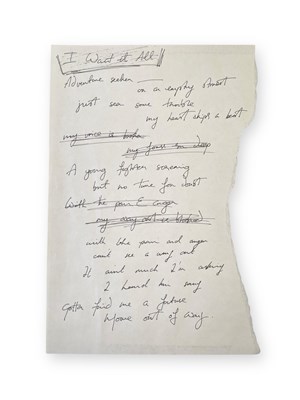 I Want it All
Adventure seeker —
on an empty street
just seen some trouble
my heart skips a beat
my voice is
my fears run deep
A young fighter screaming
but no time for doubt
With the pain & anger
my way out is blocked
with the pain and anger
cant see a way out
It aint much I'm asking
I heard him say
Gotta find me a future
Move out of way.